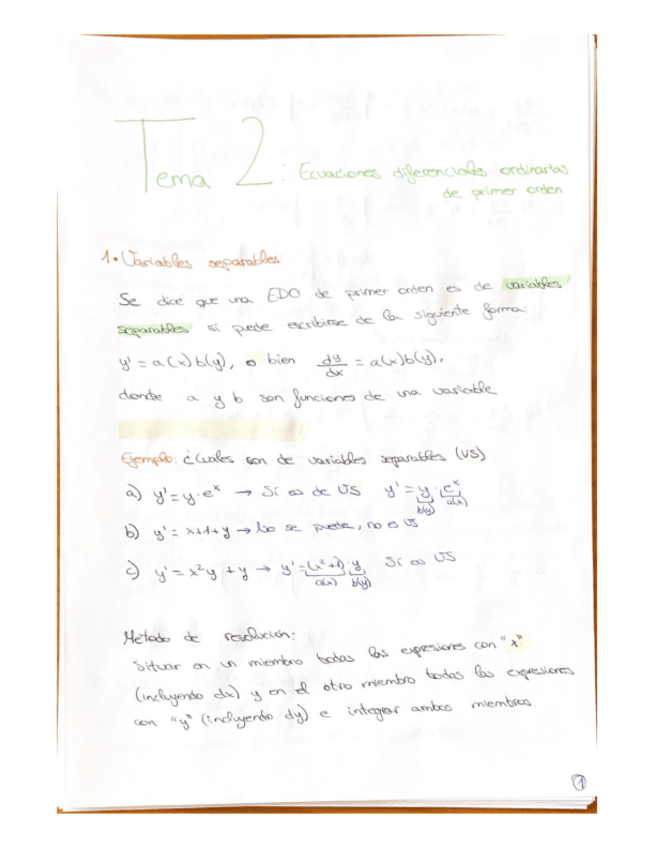 Tema 2: Ecuaciones diferenciales ordinarias
de primer orden
1. Variables separables
Se dice que una EDO de primer orden es de variables
separables si puede escribirse de la siguiente forma:
y' = a(x)b(y), o bien dy/dx = a(x)b(y),
donde a y b son funciones de una variable
Ejemplo: ¿Cuáles son de variables separables (VS)
a) y' = y·e^x → Sí es de VS y' = y · e^x
b(y) a(x)
b) y' = x+1+y → No se puede, no es VS
c) y' = x²y + y → y' = (x²+1) · y Sí es VS
a(x) b(y)
Método de resolución:
Situar en un miembro todas las expresiones con "x"
(incluyendo dx) y en el otro miembro todas las expresiones
con "y" (incluyendo dy) e integrar ambos miembros.
1